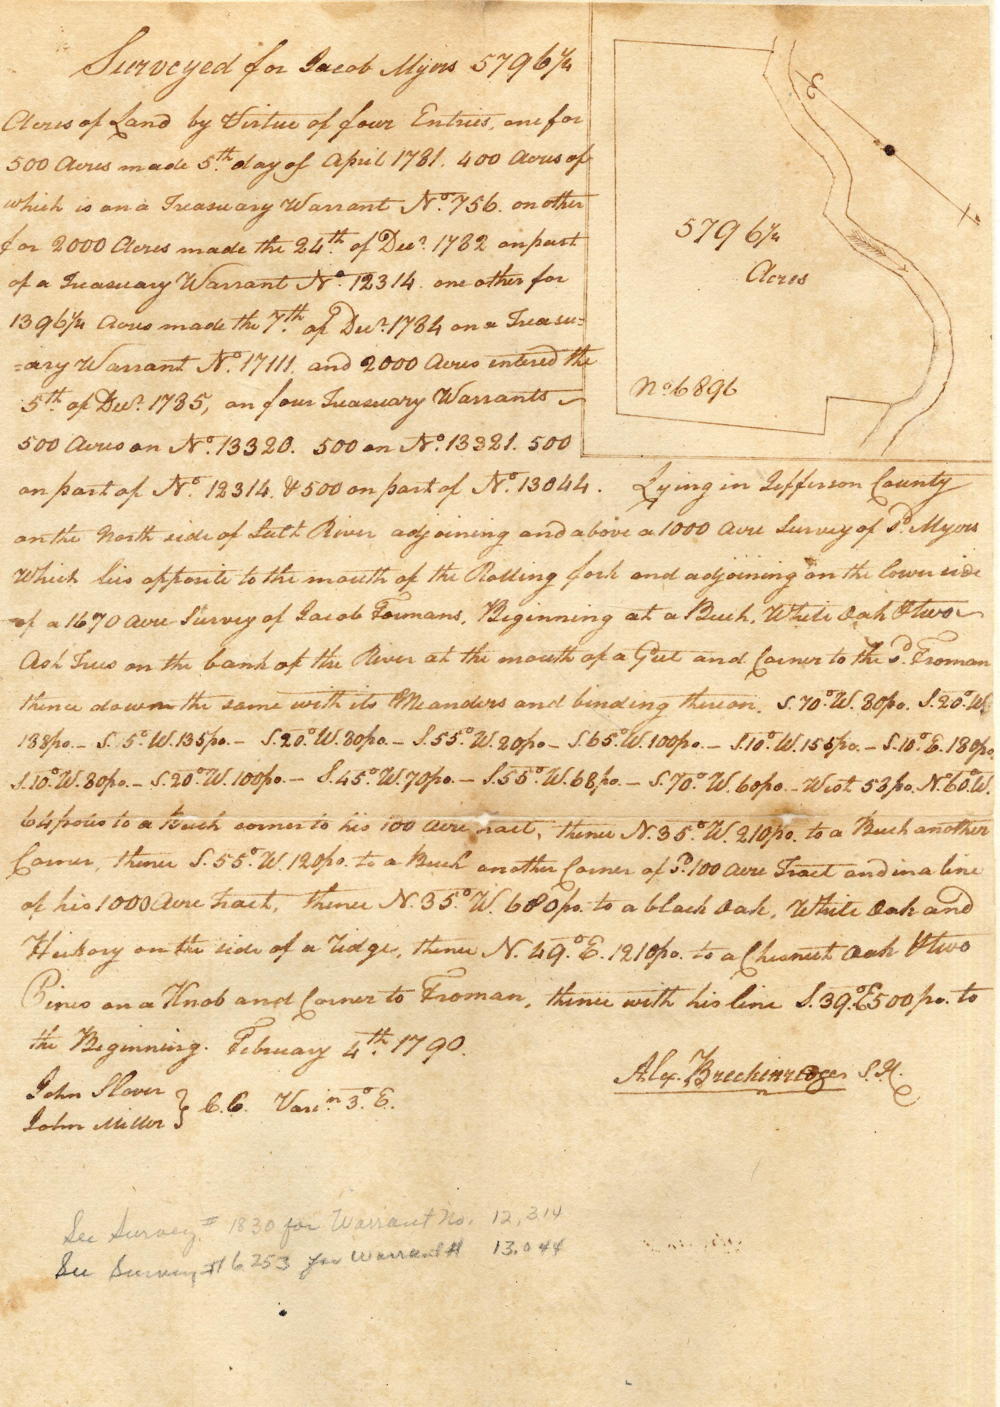 Surveyed for Jacob Myers 5796¼
Acres of Land by Virtue of four Entries, one for
500 Acres made 5th day of April 1781. 400 Acres of
which is on a Treasuary Warrant No. 756. another
for 2000 Acres made the 24th of Decr. 1782 on part
of a Treasuary Warrant No. 12314. one other for
1396¼ Acres made the 7th of Decr. 1784 on a Treasu=
=ary Warrant No. 17111. and 2000 Acres entered the
5th of Decr. 1785, on four Treasuary Warrants
500 Acres on No. 13320. 500 on No. 13321. 500
on part of No. 12314. & 500 on part of No. 13044. Lying in Jefferson County
on the North side of Salt River adjoining and above a 1000 Acre Survey of sd. Myers
Which lies opposite to the mouth of the Rolling fork and adjoining on the lower side
of a 1670 Acre Survey of Jacob Fromans, Beginning at a Beech, White Oak & two
Ash Trees on the bank of the River at the mouth of a Gut and Corner to the sd. Froman
thence down the same with its Meanders and binding thereon. S. 70° W. 80 po. S. 20° W
138 po. – S. 5° W. 135 po. – S. 20° W. 80 po – S. 55° W. 20 po – S. 65° W. 100 po. – S. 10° W. 155 po. – S. 10° E. 180 po.
S. 10° W. 80 po. – S. 20° W. 100 po. – S. 45° W. 70 po. – S. 55° W. 68 po. – S. 70° W. 60 po. – West 53 po. N. 60° W.
64 poles to a Beech corner to his 100 Acre tract, thence N. 35° W. 210 po. to a Beech another
Corner, thence S. 55° W. 120 po. to a Beech another Corner of sd. 100 Acre Tract and in a line
of his 1000 Acre Tract, thence N. 35° W. 680 po. to a black Oak, White Oak and
Hickory on the side of a ridge, thence N. 49° E. 1210 po. to a Chesnut Oak & two
Pines on a Knob and Corner to Froman, thence with his line S. 39° E 500 po. to
the Beginning. February 4th. 1790.
Alex. Breckinredge S.J.C.
John Slover
John Miller } C.C. Varin. 3° E.
5796¼
Acres
No 6896
See Survey # 1830 for Warrant No. 12,314
See Survey # 6253 for Warrant # 13,044